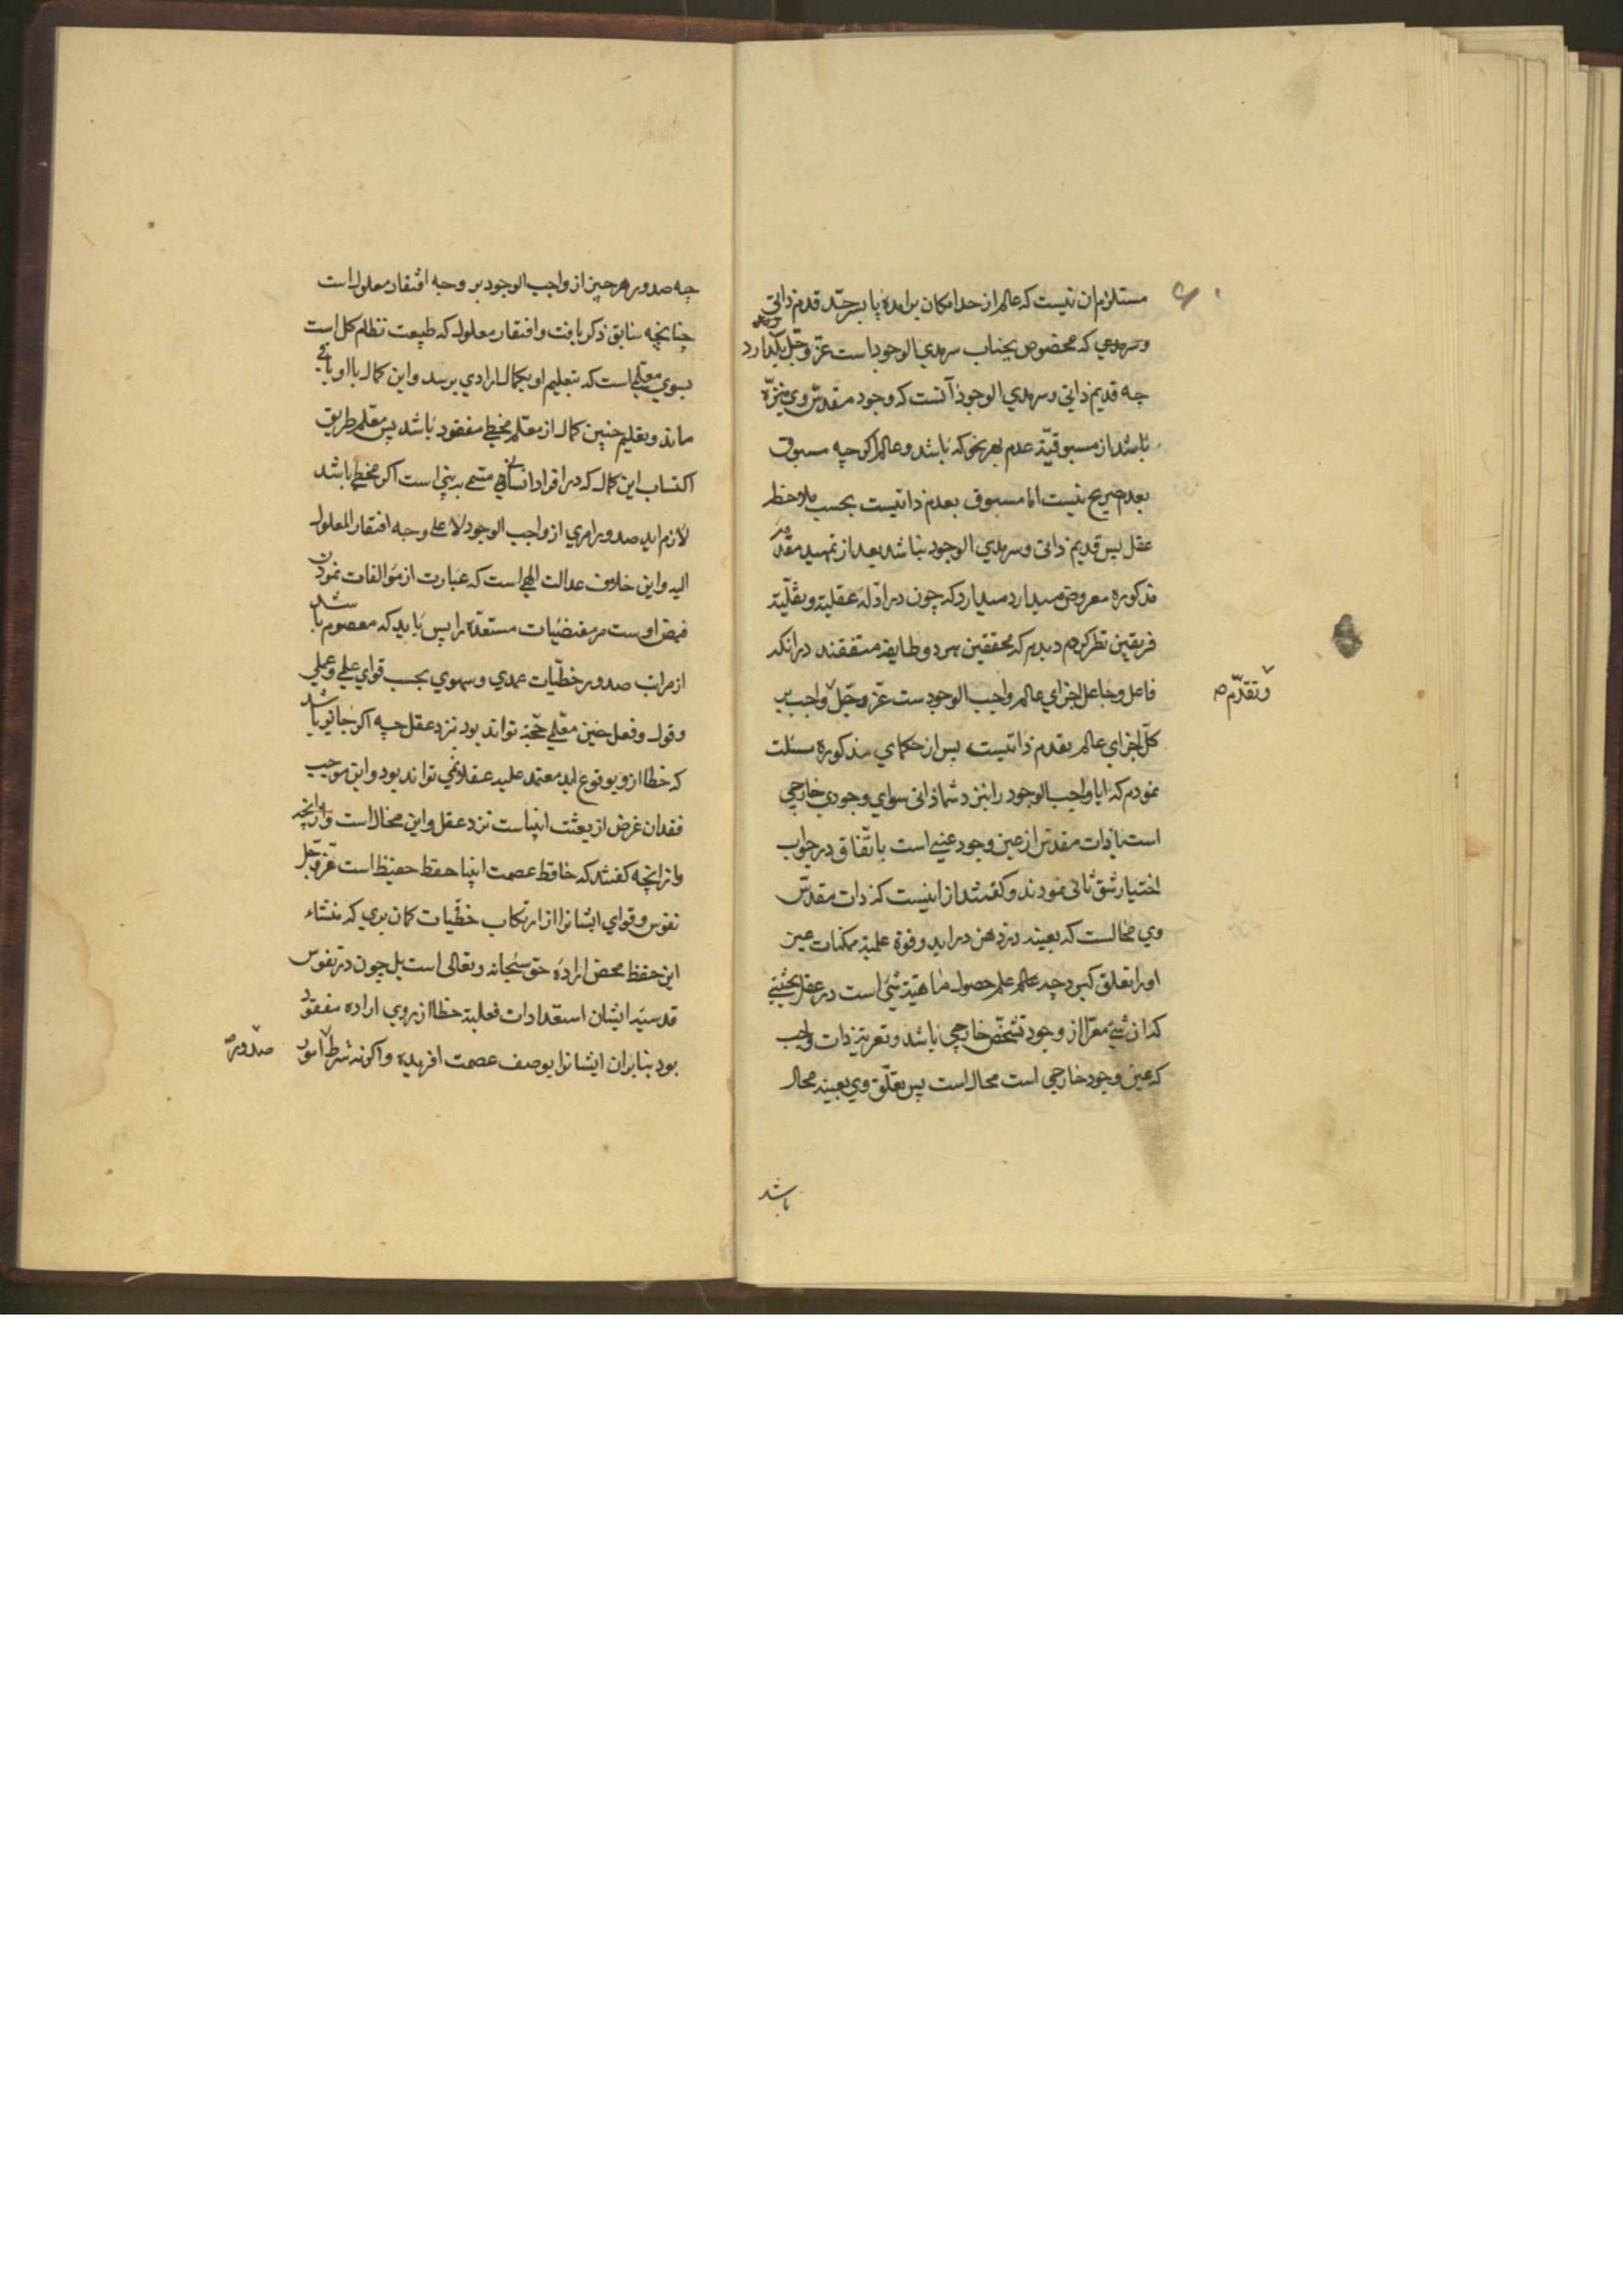 مستلزم ان نیست که عالم از حد امکان برامده پا بسرحد قدم ذاتی
وسرمدی که مخصوص بجناب سرمدی الوجود است عز وجل بگذارد
چه قدیم ذاتی وسرمدی الوجود آنست که وجود مقدس وی منزه
باشد از مسبوقیة عدم بهر نحو که باشد وعالم اکرچه مسبوق
بعدم صریح نیست اما مسبوق بعدم ذاتیست بحسب ملاحظه
عقل پس قدیم ذاتی وسرمدی الوجود نباشد بعد از تمهید مقدمه
مذکوره معروض میدارد که چون در ادله عقلیة ونقلیة
فریقین نظر کردم دیدم که محققین هر دو طایفه متفقند در انکه
فاعل وجاعل اجزای عالم واجب الوجودست عز وجل واجب بر
وتقدم
کل اجزای عالم بقدم ذاتیست پس از حکمای مذکوره مسئلت
نمودم که ایا واجب الوجود را بنزد شما ذاتی سوای وجودی خارجی
است یا ذات مقدس از عین وجود عینی است باتفاق در جواب
اختیار شق ثانی نمودند وکفتند از اینست که ذات مقدس
وی محالست که بعینه در ذهن دراید وقوة علمیة ممکنات عین
اورا تعلق کیرد چه علم حصول ماهیة شئ است در عقل بحیثیتی
که ان شئ معرا از وجود تشخص خارجی باشد وتعریة ذات واجب
که عین وجود خارجی است محال است پس تعلق وی بعینه محال
باشد
چه صدور هر چیز از واجب الوجود بر وجه افتقار معلول است
چنانچه سابق ذکر یافت وافتقار معلول که طبیعت نظام کل است
بسوی معلمی است که بتعلیم او بکمال ارادی برسد واین کمال با او باقی
ماند وتعلیم چنین کمال از معلم مخطی مفقود باشد پس معلم طریق
اکتساب این کمال که در افراد انسانی مسمی به نبی است اکر مخطی باشد
لازم اید صدور امری از واجب الوجود لا علی وجه افتقار المعلول
الیه واین خلاف عدالت الهی است که عبارت از موالفات نمودن
فیض اوست مر مقتضیات مستعده را پس باید که معصوم باشد
از مراتب صدور خطیات عمدی وسهوی بحسب قوای علمی وعملی
وقول وفعل چنین معلمی حجة تواند بود نزد عقل چه اکر جانی باشد
که خطا ازو بوقوع اید معتمد علیه عقلا نمی تواند بود واین موجب
فقدان غرض از بعثت انبیاست نزد عقل واین محال است
وانچه کفتند که حافظ عصمت انبیا حفظ حفیظ است عز وجل
نفوس وقوای ایشانرا از ارتکاب خطیات کمان بری که منشاء
این حفظ محض اراده حق سبحانه وتعالی است بل چون در نفوس
قدسیه ایشان استعدادات فعلیة خطا از روی اراده مفقود
بود بنابران ایشانرا بوصف عصمت افریده واکرنه شرط امور
صدور